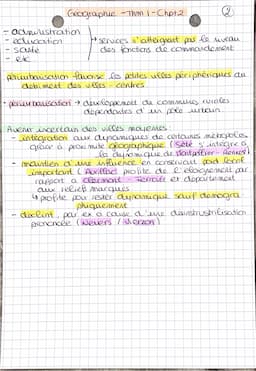 Géographie - Thm 1 - Chpt 2
②
- administration
- éducation
- santé
- etc
→ services n'atteignant pas le niveau
des fonctions de commandement
périurbanisation favorise les petites villes périphériques au
détriment des villes-centres
périurbanisation → développement de communes rurales
dépendantes d'un pôle urbain.
Avenir incertain des villes moyennes :
- intégration aux dynamiques de certaines métropoles
grâce à proximité géographique (Sète s'intègre à
la dynamique de Montpellier
- maintien d'une influence en conservant poid local
important (Aurillac profite de l'éloignement par
rapport à Clermont-Ferrand et département
aux reliefs marqués
↳ profite pour rester dynamique sauf démogra
phiquement
- déclin, par ex à cause d'une désindustrialisation
prononcée (Nevers / Vierzon)